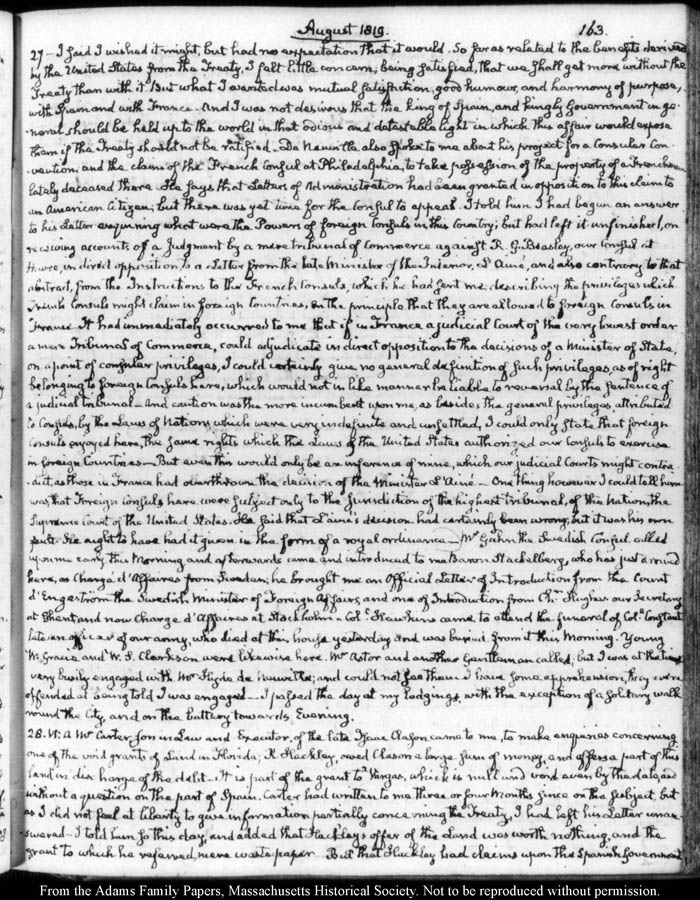 August 1819. 163.
27 — I said I wished it might, but had no expectation that it would. So far as related to the benefits derived
by the United States from the Treaty, I felt little concern; being satisfied, that we shall get more without the
Treaty than with it. But what I wanted was mutual satisfaction, good humour, and harmony of purpose,
with Spain and with France. And I was not desirous that the king of Spain, and kingly Government in ge-
-neral should be held up to the world in that odious and detestable light in which this affair would expose
them if the Treaty should not be ratified. De Neuville also spoke to me about his project for a Consular Con-
-vention, and the claim of the French Consul at Philadelphia, to take possession of the property of a Frenchman
lately deceased there. He says that Letters of Administration had been granted in opposition to this claim to
an American Citizen; but there was yet time for the Consul to appeal. I told him I had begun an answer
to his Letter enquiring what were the Powers of foreign Consuls in this Country; but had left it unfinished, on
receiving accounts of a Judgment by a mere tribunal of Commerce against R. G. Beasley, our Consul at
Havre, in direct opposition to a Letter from the late Minister of the Interior, Lainé, and also contrary to that
abstract, from the Instructions to the French Consuls, which he had sent me, describing the privileges which
French Consuls might claim in foreign Countries, on the principle that they are allowed to foreign Consuls in
France. It had immediately occurred to me that if in France a judicial Court of the very lowest order
a mere Tribunal of Commerce, could adjudicate in direct opposition to the decisions of a Minister of State,
on a point of consular privileges, I could certainly give no general definition of such privileges, as of right
belonging to foreign Consuls here, which would not in like manner be liable to reversal by the sentence of
a judicial tribunal — And caution was the more incumbent upon me, as besides the general privileges attributed
to Consuls, by the Laws of Nations, which were very indefinite and unsettled, I could only State that foreign
Consuls enjoyed here, the same rights which the Laws of the United States authorized our Consuls to exercise
in foreign Countries — But even this would only be an inference of mine, which our judicial Courts might contra-
-dict, as those in France had overthrown the decision of the Minister Lainé — One thing however I could tell him
was, that Foreign Consuls here were subject only to the Jurisdiction of the highest tribunal, of the Nation, the
Supreme Court of the United States. He said that Lainé's decision had certainly been wrong, but it was his own
fault. He ought to have had it given in the form of a royal ordinance — Mr Gahn the Swedish Consul called
upon me early this Morning and afterwards came and introduced to me Baron Stackelberg, who has just arrived
here, as Chargé d'Affaires from Sweden; he brought me an Official Letter of Introduction from the Count
d'Engeström the Swedish Minister of Foreign Affairs, and one of Introduction from Chr. Hughes our Secretary
at Ghent and now Chargé d'Affaires at Stockholm — Coll. Hawkins came to attend the funeral of Coll. Constant
late an officer of our army, who died at this house yesterday and was buried from it this Morning. Young
W. Gracie and W. S. Clarkson were likewise here. Mr Astor and another Gentleman called; but I was at the time
very busily engaged with Mr Hyde de Neuville; and could not see them. I have some apprehension, they were
offended at being told I was engaged — I passed the day at my lodgings with the exception of a solitary walk
round the City, and on the battery towards Evening.
28. VI: A Mr Carter, Son in Law and Executor of the late Isaac Clason came to me, to make enquiries concerning
one of the void grants of Land in Florida; R. Hackley, owed Clason a large sum of money, and offers a part of this
Land in discharge of the debt — It is part of the grant to Vargas, which is null and void even by the date, and
without a question on the part of Spain. Carter had written to me three or four Months since on the subject, but
as I did not feel at liberty to give information partially concerning the Treaty, I had left his Letter unan-
swered — I told him so this day, and added that Hackley's offer of the Land was worth nothing, and the
grant to which he referred, mere waste paper. But that Hackley had claims upon the Spanish Government
From the Adams Family Papers, Massachusetts Historical Society. Not to be reproduced without permission.